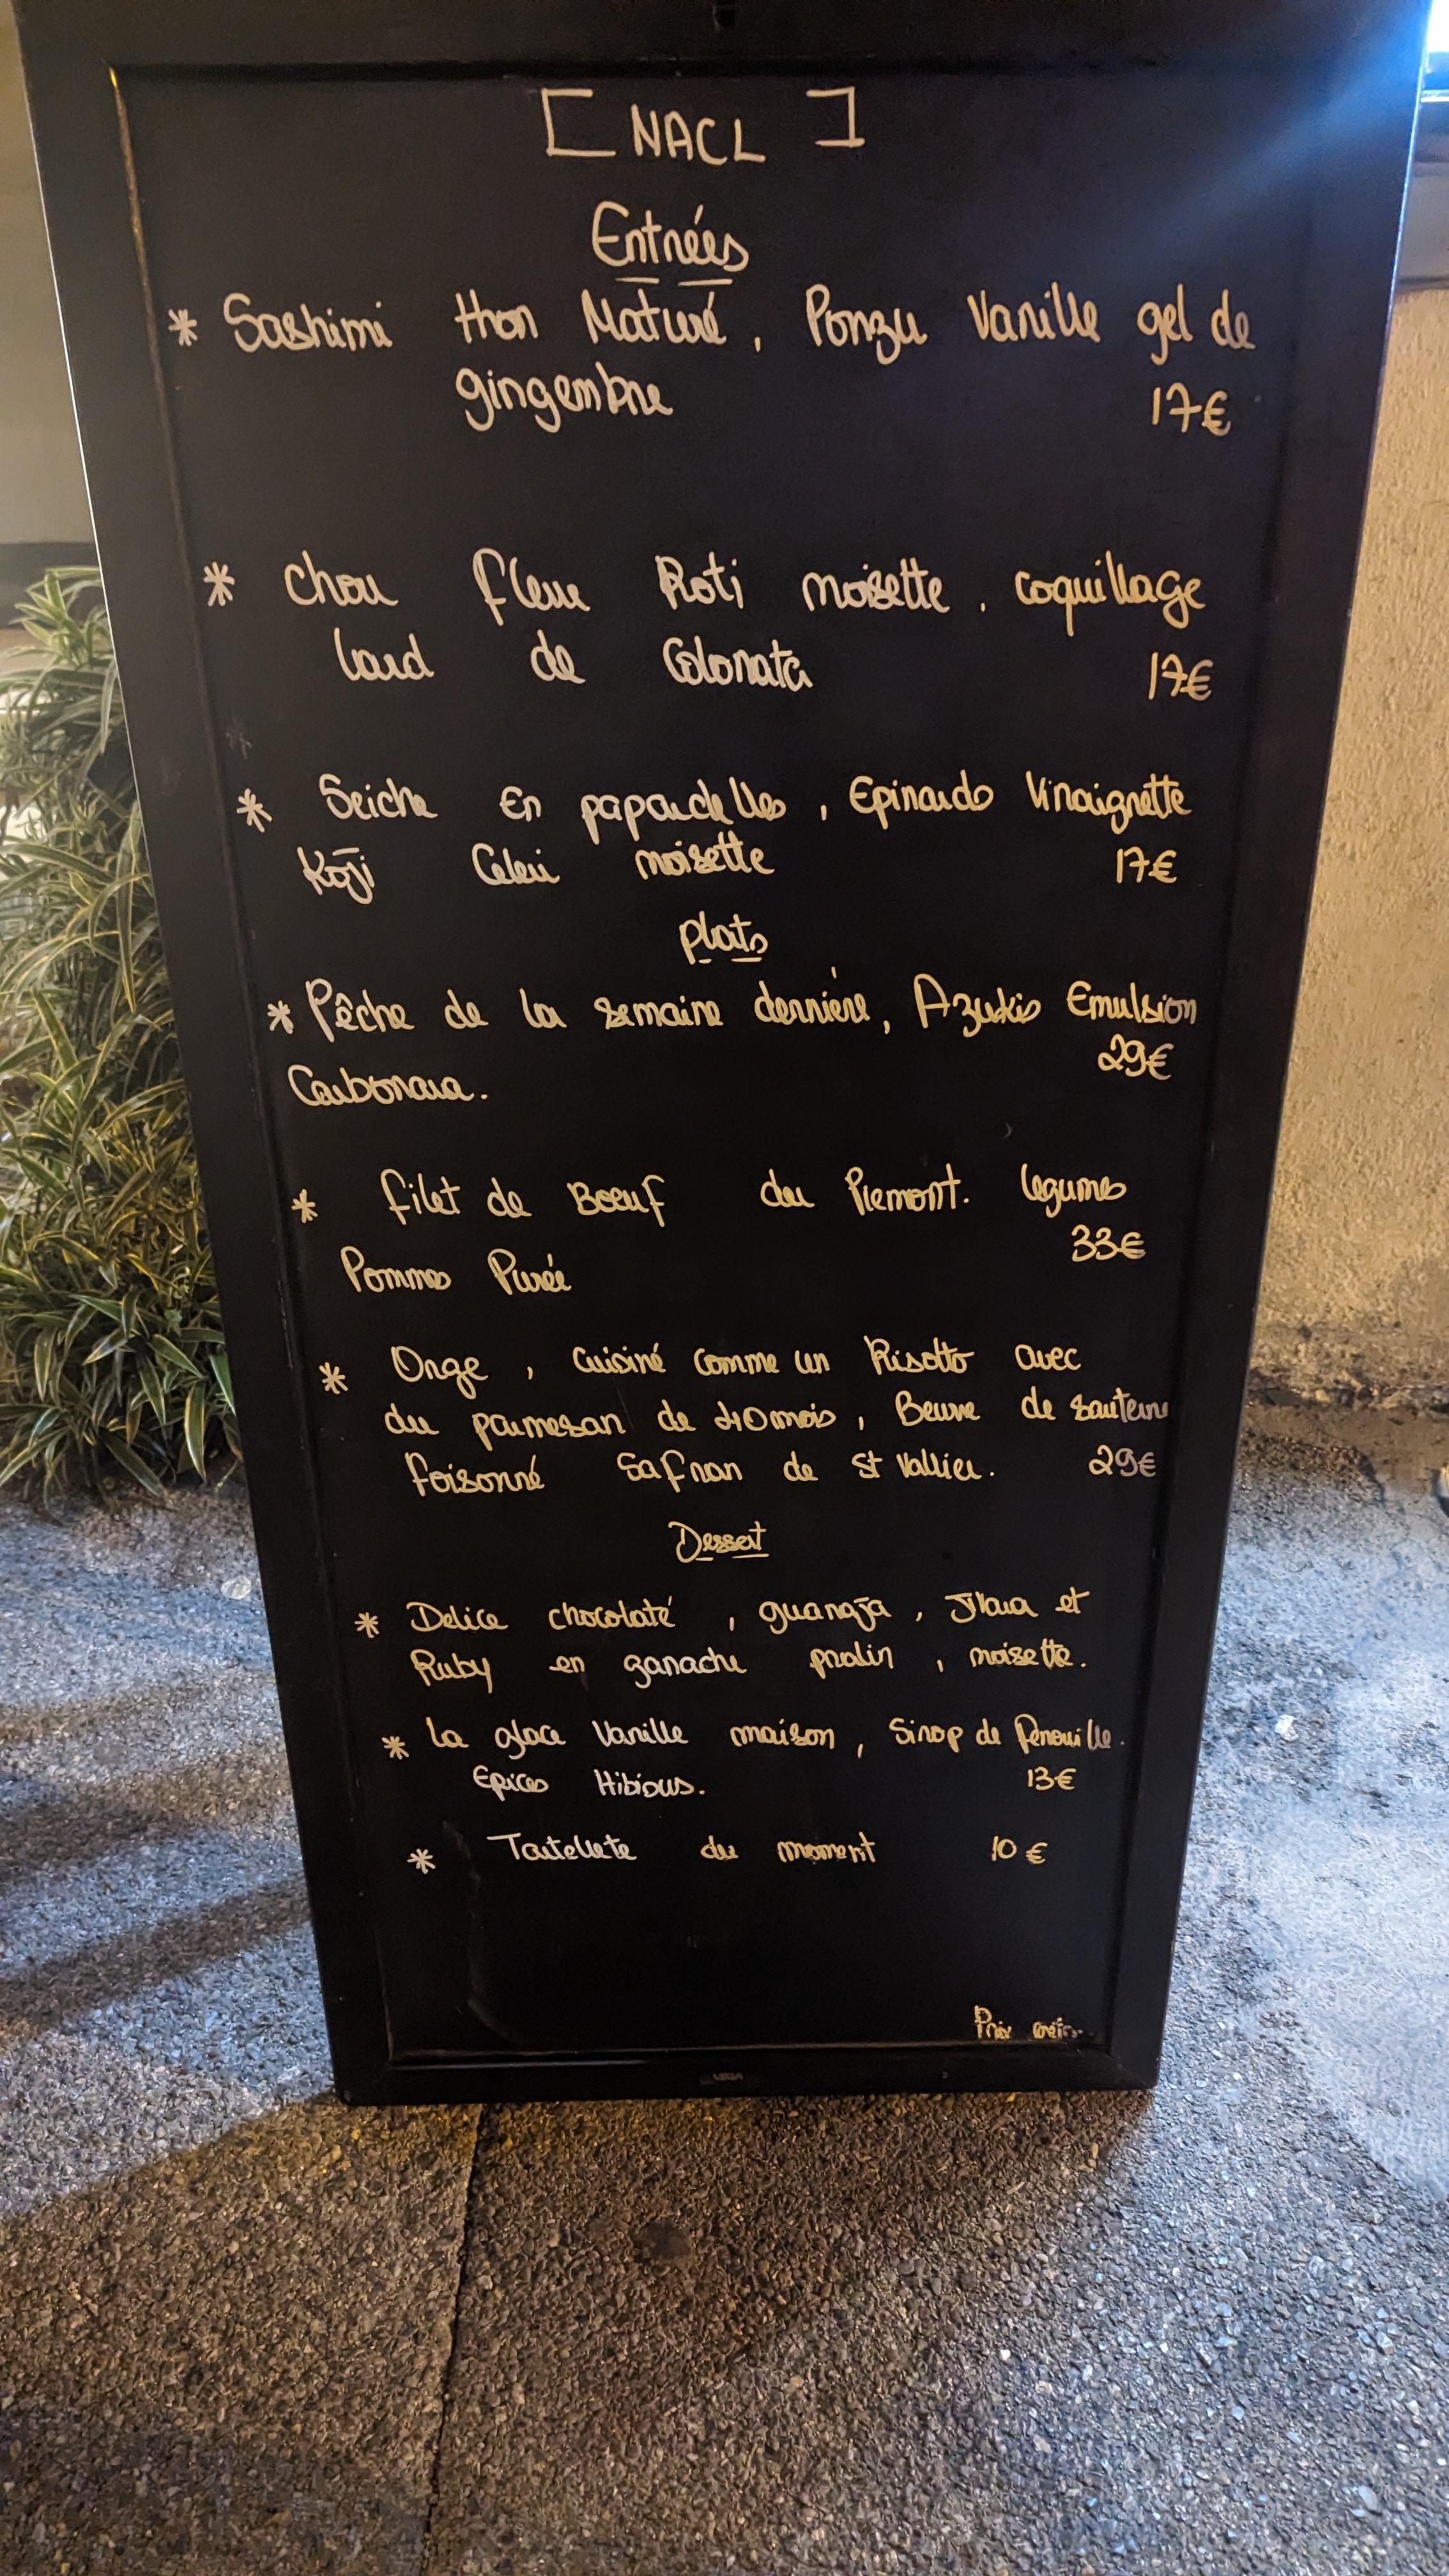 [ NACL ]
Entrées
* Sashimi thon Maturé, Ponzu Vanille gel de
gingembre 17€
* Chou fleur Roti noisette, coquillage
lard de Colonata 17€
* Seiche En papardelles, Epinards Vinaigrette
Koji Celeri noisette 17€
plats
* Pêche de la semaine dernière, Azukis Emulsion
29€
Carbonara.
* filet de Boeuf du Piemont. legumes
33€
Pommes Purée
* Orge, Cuisiné Comme un Risotto avec
du parmesan de 40mois, Beurre de sauterne
Poisonné Safran de St Vallier. 29€
Dessert
* Delice chocolaté, guanaja, Jivara et
Ruby en ganache pralin, noisette.
* La glace Vanille maison, Sirop de
Epices Hibicus. 13€
* Tartelete du moment 10€
Prix